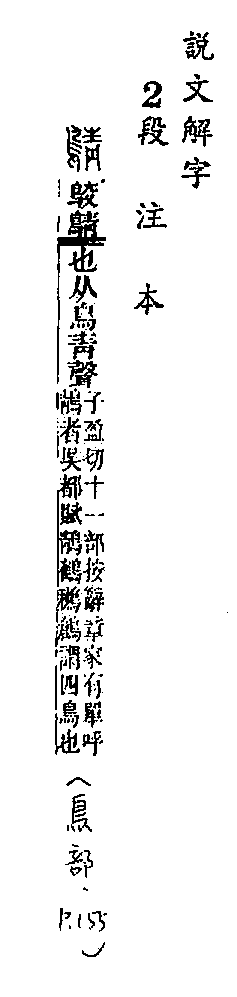 說文解字
2段注本
鶄 鮫鶄也从鳥青聲
子盈切十一部按辭章家有單呼
鶄者吳都賦鶄鶴鶖鶬謂四鳥也
(鳥部、P.155)